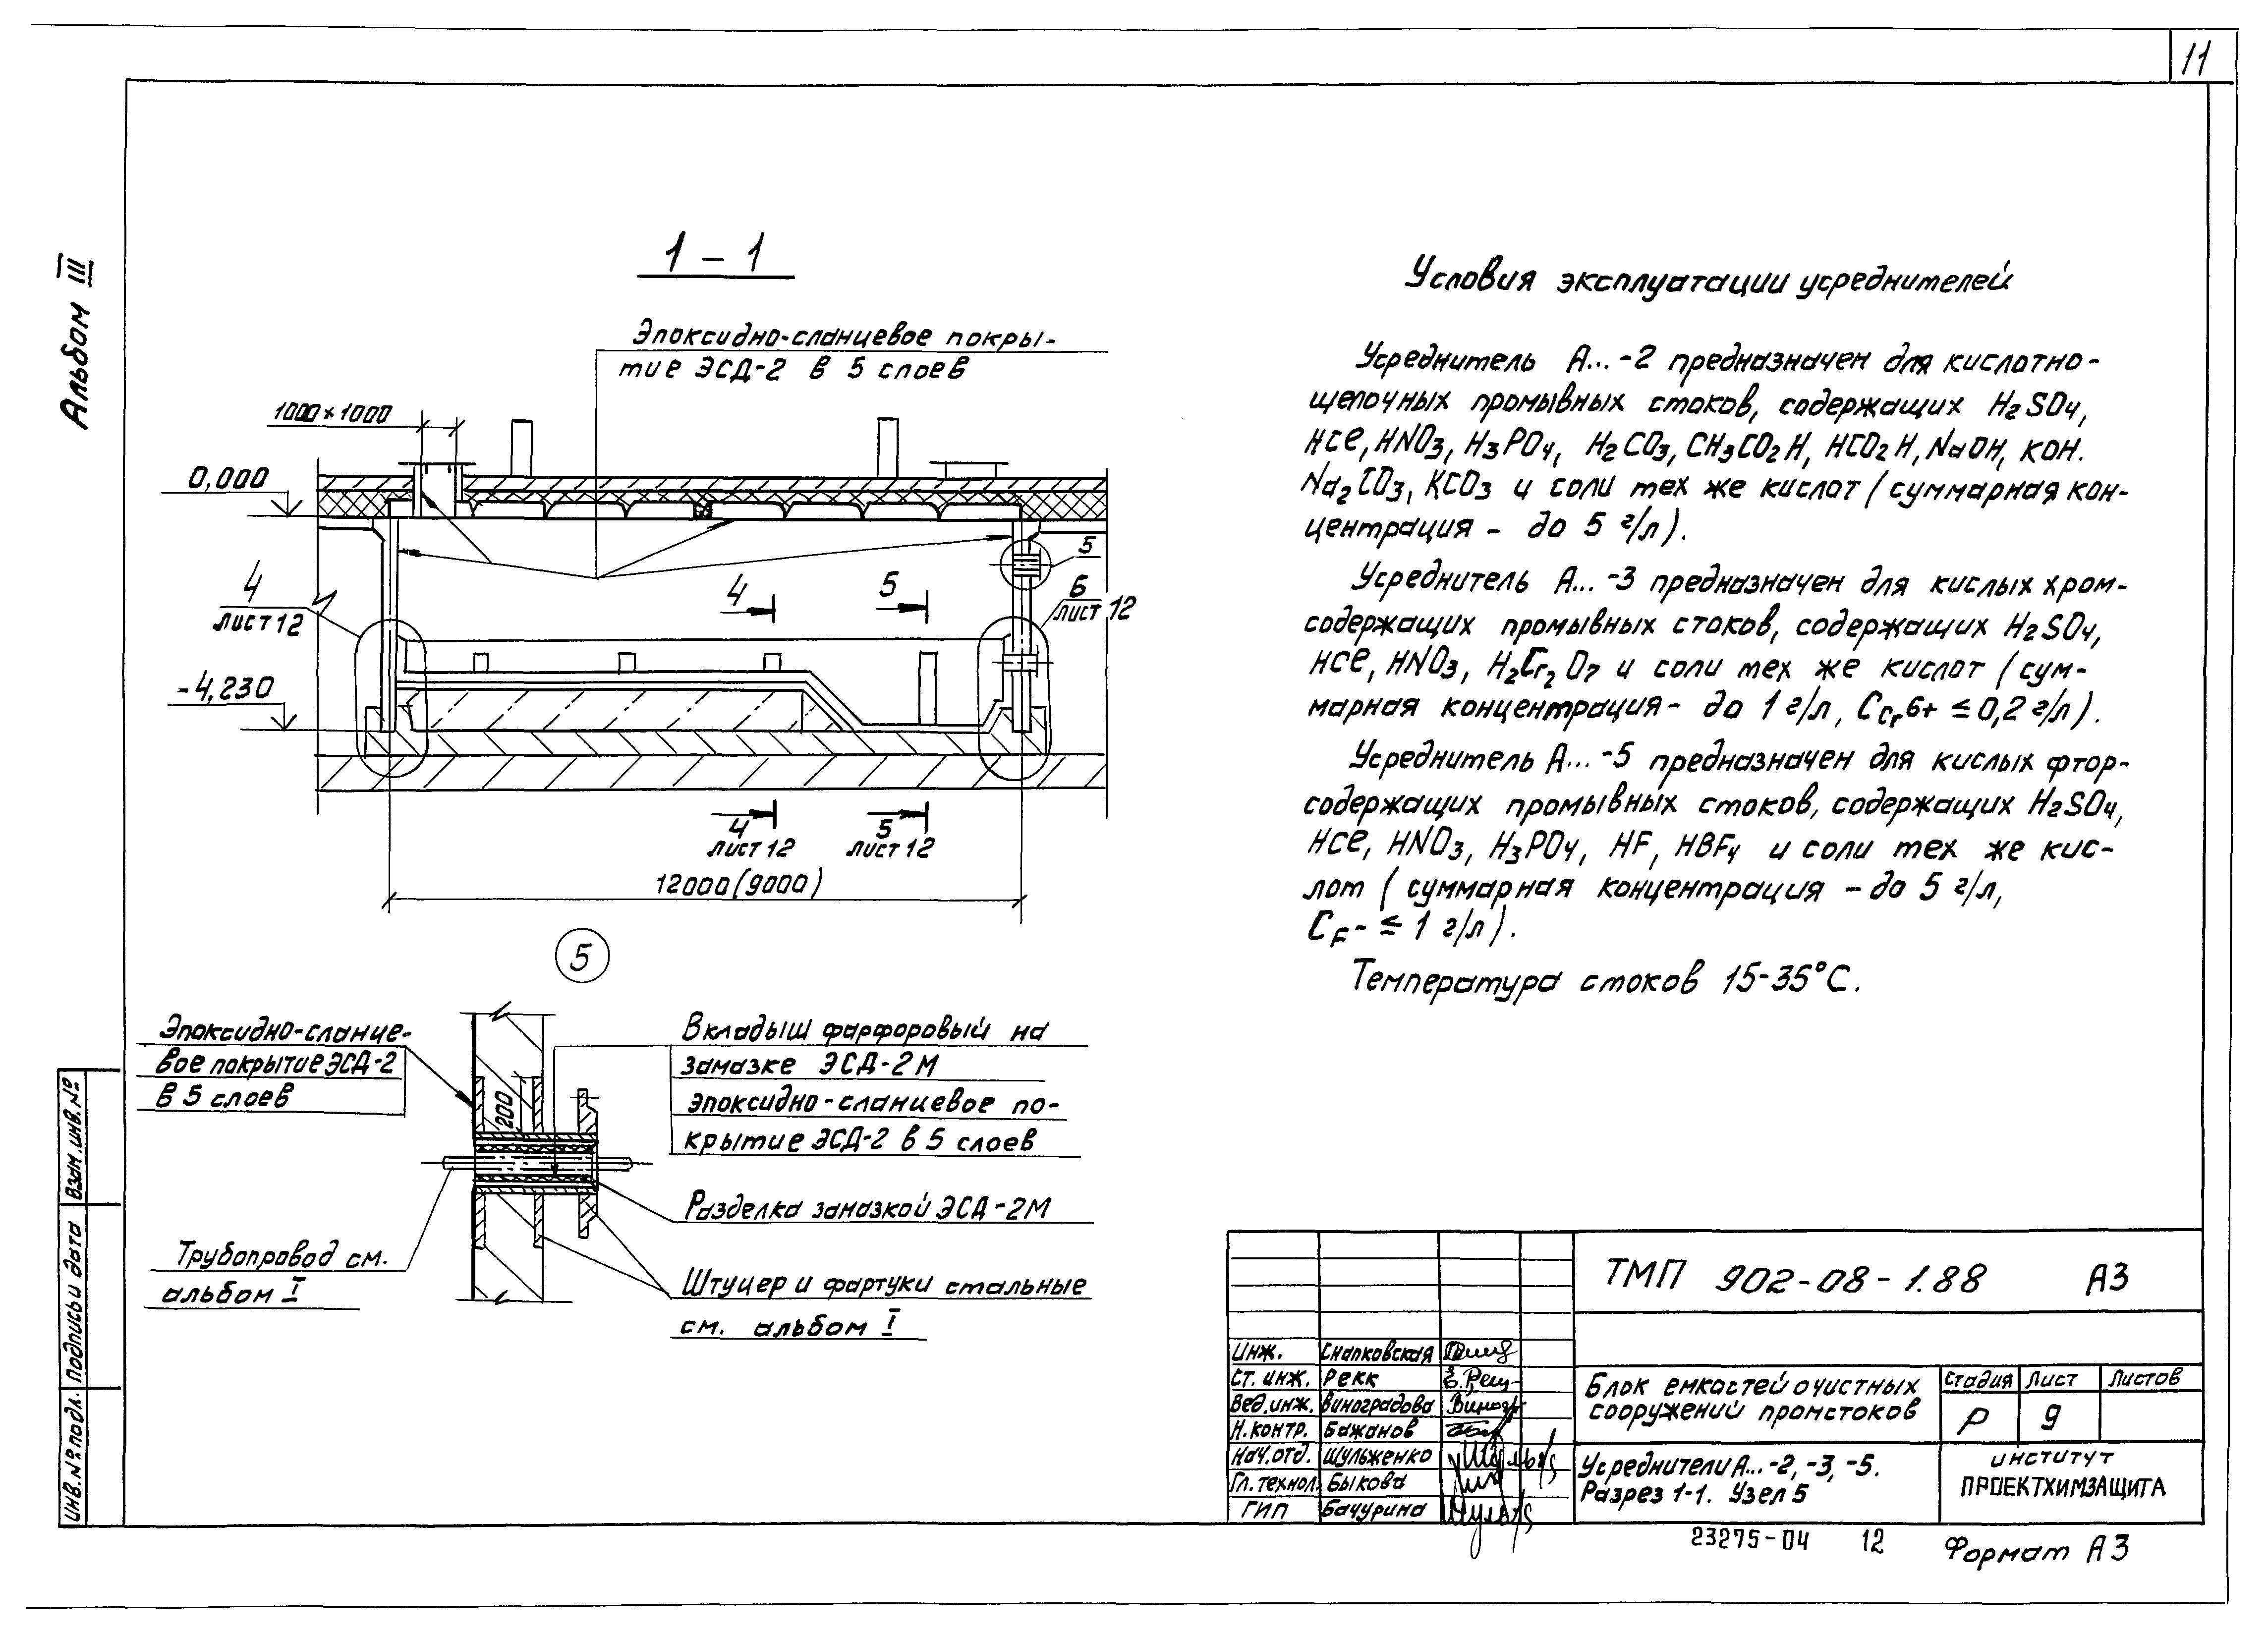 11
Альбом III
1 - 1
Эпоксидно-сланцевое покры-
тие ЭСД-2 в 5 слоев
1000×1000
0,000
-4,230
4
лист 12
4
5
5
6
лист 12
4
лист 12
5
лист 12
12000(9000)
5
Эпоксидно-сланце-
вое покрытие ЭСД-2
в 5 слоев
200
Вкладыш фарфоровый на
замазке ЭСД-2М
эпоксидно-сланцевое по-
крытие ЭСД-2 в 5 слоев
Разделка замазкой ЭСД-2М
Трубопровод см.
альбом I
Штуцер и фартуки стальные
см. альбом I
Условия эксплуатации усреднителей
Усреднитель А...-2 предназначен для кислотно-
щелочных промывных стоков, содержащих H2SO4,
HCl, HNO3, H3PO4, H2CO3, CH3CO2H, HCO2H, NaOH, KOH.
Na2CO3, KCO3 и соли тех же кислот (суммарная кон-
центрация - до 5 г/л).
Усреднитель А...-3 предназначен для кислых хром-
содержащих промывных стоков, содержащих H2SO4,
HCl, HNO3, H2Cr2O7 и соли тех же кислот (сум-
марная концентрация - до 1 г/л, CCr6+ ≤ 0,2 г/л).
Усреднитель А...-5 предназначен для кислых фтор-
содержащих промывных стоков, содержащих H2SO4,
HCl, HNO3, H3PO4, HF, HBF4 и соли тех же кис-
лот (суммарная концентрация - до 5 г/л,
CF- ≤ 1 г/л).
Температура стоков 15-35°С.
Взам. инв. №
Подпись и дата
Инв. № подл.
ТМП 902-08-1.88 А3
Инж. Снапковская
Ст. инж. Рекк
Вед. инж. Виноградова
Н. контр. Бажанов
Нач. отд. Шульженко
Гл. технол. Быкова
ГИП Бачурина
Блок емкостей очистных
сооружений промстоков
Стадия Лист Листов
Р 9
Усреднители А...-2, -3, -5.
Разрез 1-1. Узел 5
институт
ПРОЕКТХИМЗАЩИТА
23275-04 12
Формат А3